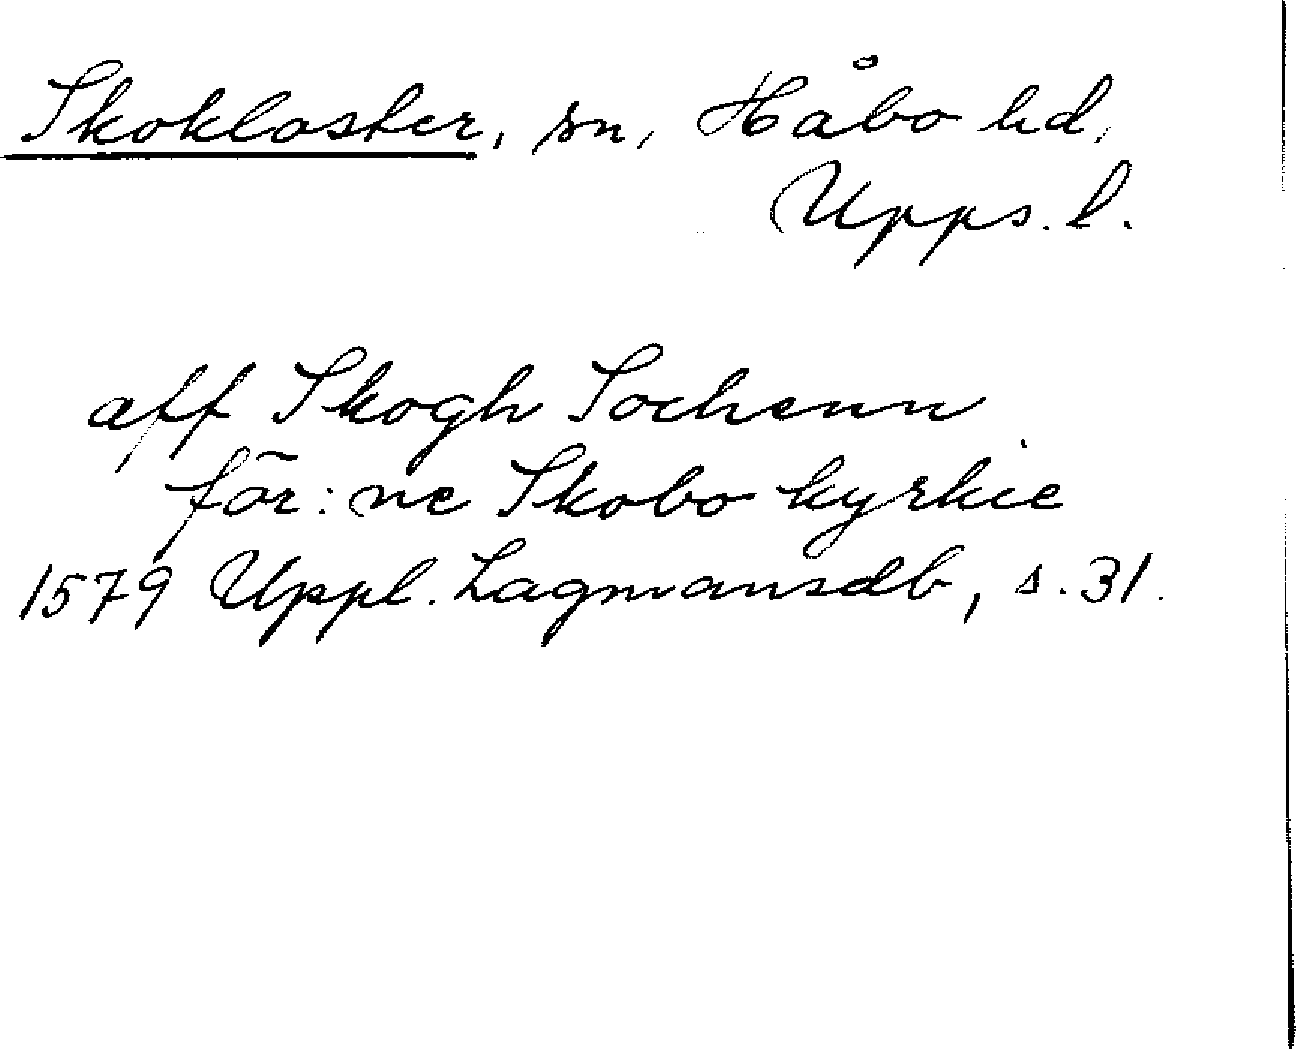 Skokloster, sn, Håbo hd,
Upps. l.
aff Skogh Sochenn
för: ne Skobo kyrkie
1579 Uppl. Lagmansdb, s. 31.